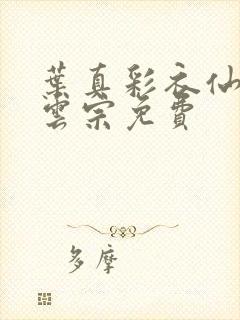 葉真彩衣仙
雲宗免費
多摩